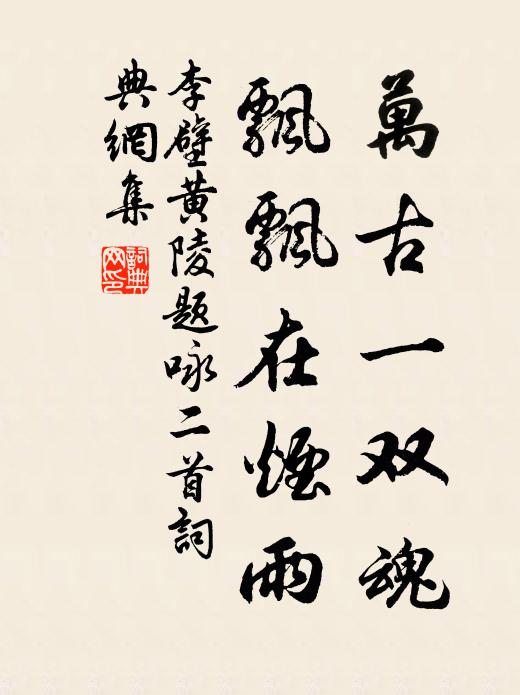 萬古一双魂
飄飄在煙雨
李壁黄陵題咏二首詞
典網集
詞典网印